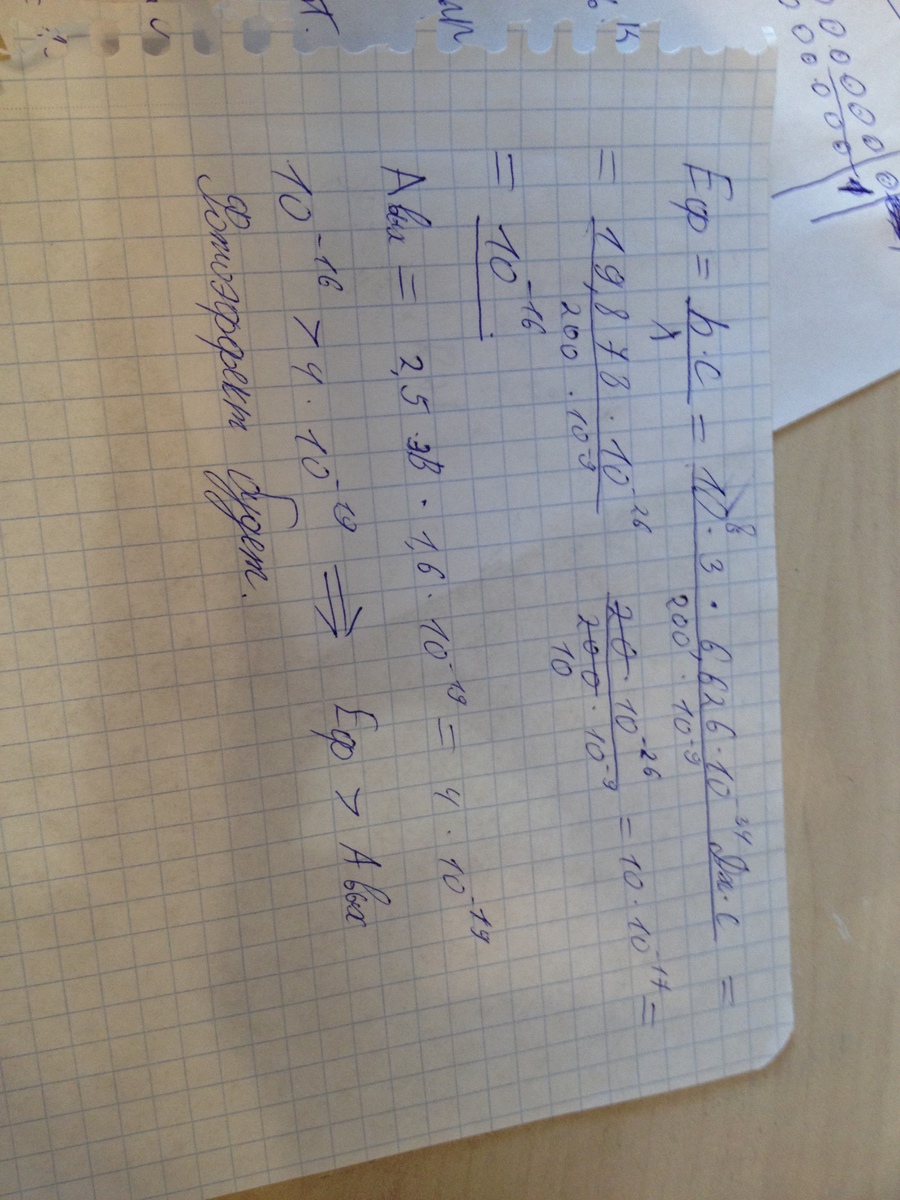 Eф = h·c / λ = 10⁸ · 3 · 6,626 · 10⁻³⁴ Дж·с / 200 · 10⁻⁹ =
= 19,878 · 10⁻²⁶ / 200 · 10⁻⁹ 20 · 10⁻²⁶ / 200 · 10⁻⁹ = 10 · 10⁻¹⁷ =
10
= 10⁻¹⁶
Aвых = 2,5 эВ · 1,6 · 10⁻¹⁹ = 4 · 10⁻¹⁹
10⁻¹⁶ > 4 · 10⁻¹⁹ ⇒ Eф > Aвых
Фотоэффект будет.